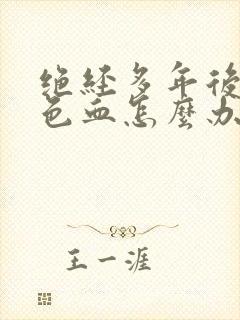 绝经多年後
色血怎麼办
王一涯